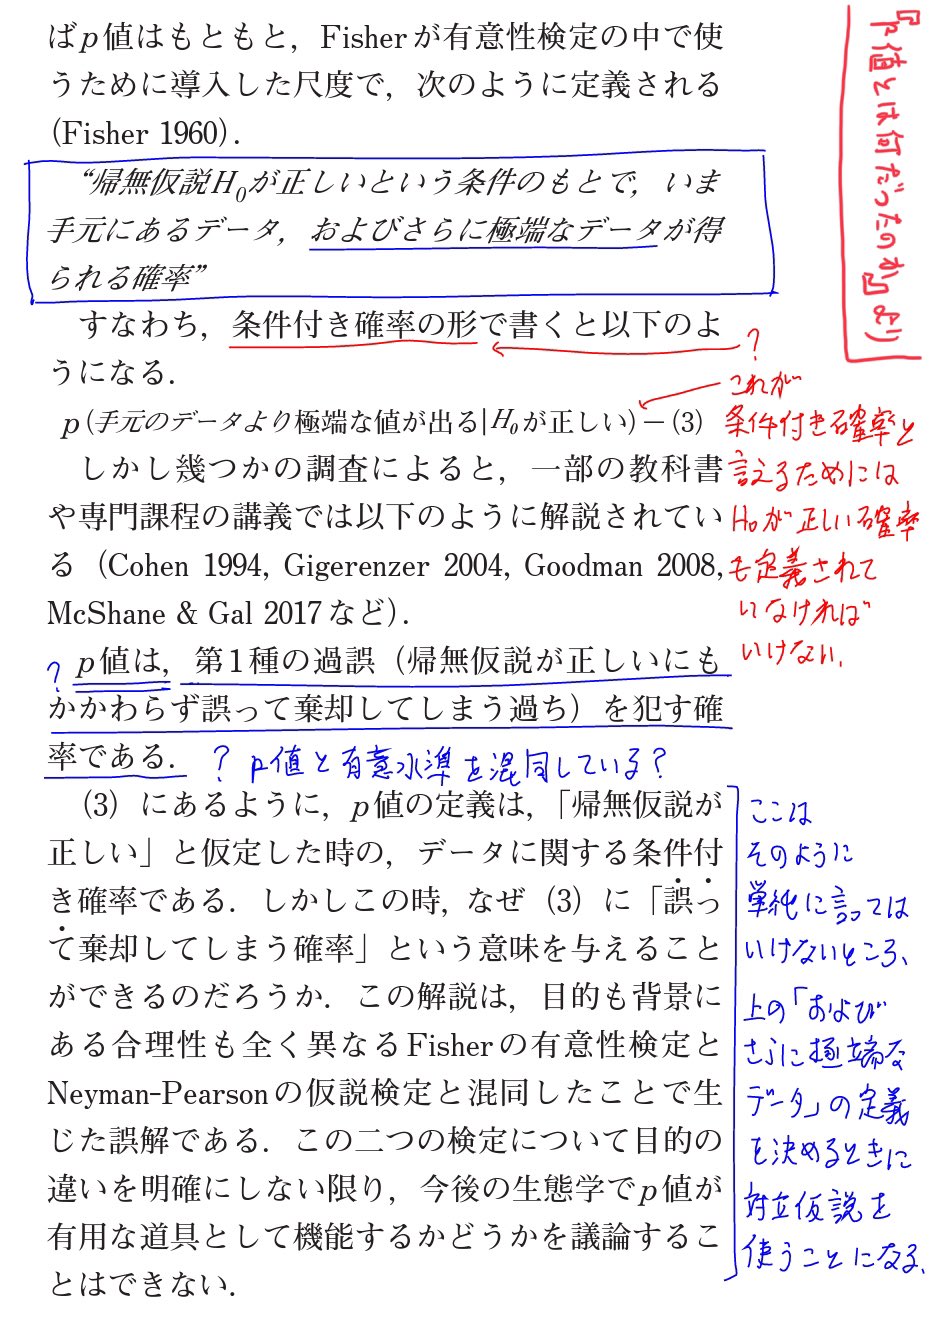 『P値とは何だったのか』より
ばp値はもともと，Fisherが有意性検定の中で使
うために導入した尺度で，次のように定義される
(Fisher 1960)．
“帰無仮説H0が正しいという条件のもとで，いま
手元にあるデータ，およびさらに極端なデータが得
られる確率”
すなわち，条件付き確率の形で書くと以下のよ
うになる．
p(手元のデータより極端な値が出る|H0が正しい)－(3)
?
これが
条件付き確率と
言えるためには
H0が正しい確率
も定義されて
いなければ
いけない.
しかし幾つかの調査によると，一部の教科書
や専門課程の講義では以下のように解説されてい
る（Cohen 1994, Gigerenzer 2004, Goodman 2008,
McShane & Gal 2017など）．
? p値は，第1種の過誤（帰無仮説が正しいにも
かかわらず誤って棄却してしまう過ち）を犯す確
率である．
? p値と有意水準を混同している?
（3）にあるように，p値の定義は，「帰無仮説が
正しい」と仮定した時の，データに関する条件付
き確率である．しかしこの時，なぜ（3）に「誤っ
て棄却してしまう確率」という意味を与えること
ができるのだろうか．この解説は，目的も背景に
ある合理性も全く異なるFisherの有意性検定と
Neyman-Pearsonの仮説検定と混同したことで生
じた誤解である．この二つの検定について目的の
違いを明確にしない限り，今後の生態学でp値が
有用な道具として機能するかどうかを議論するこ
とはできない．
ここは
そのように
単純に言っては
いけないところ、
上の「および
さらに極端な
データ」の定義
を決めるときに
対立仮説を
使うことになる、